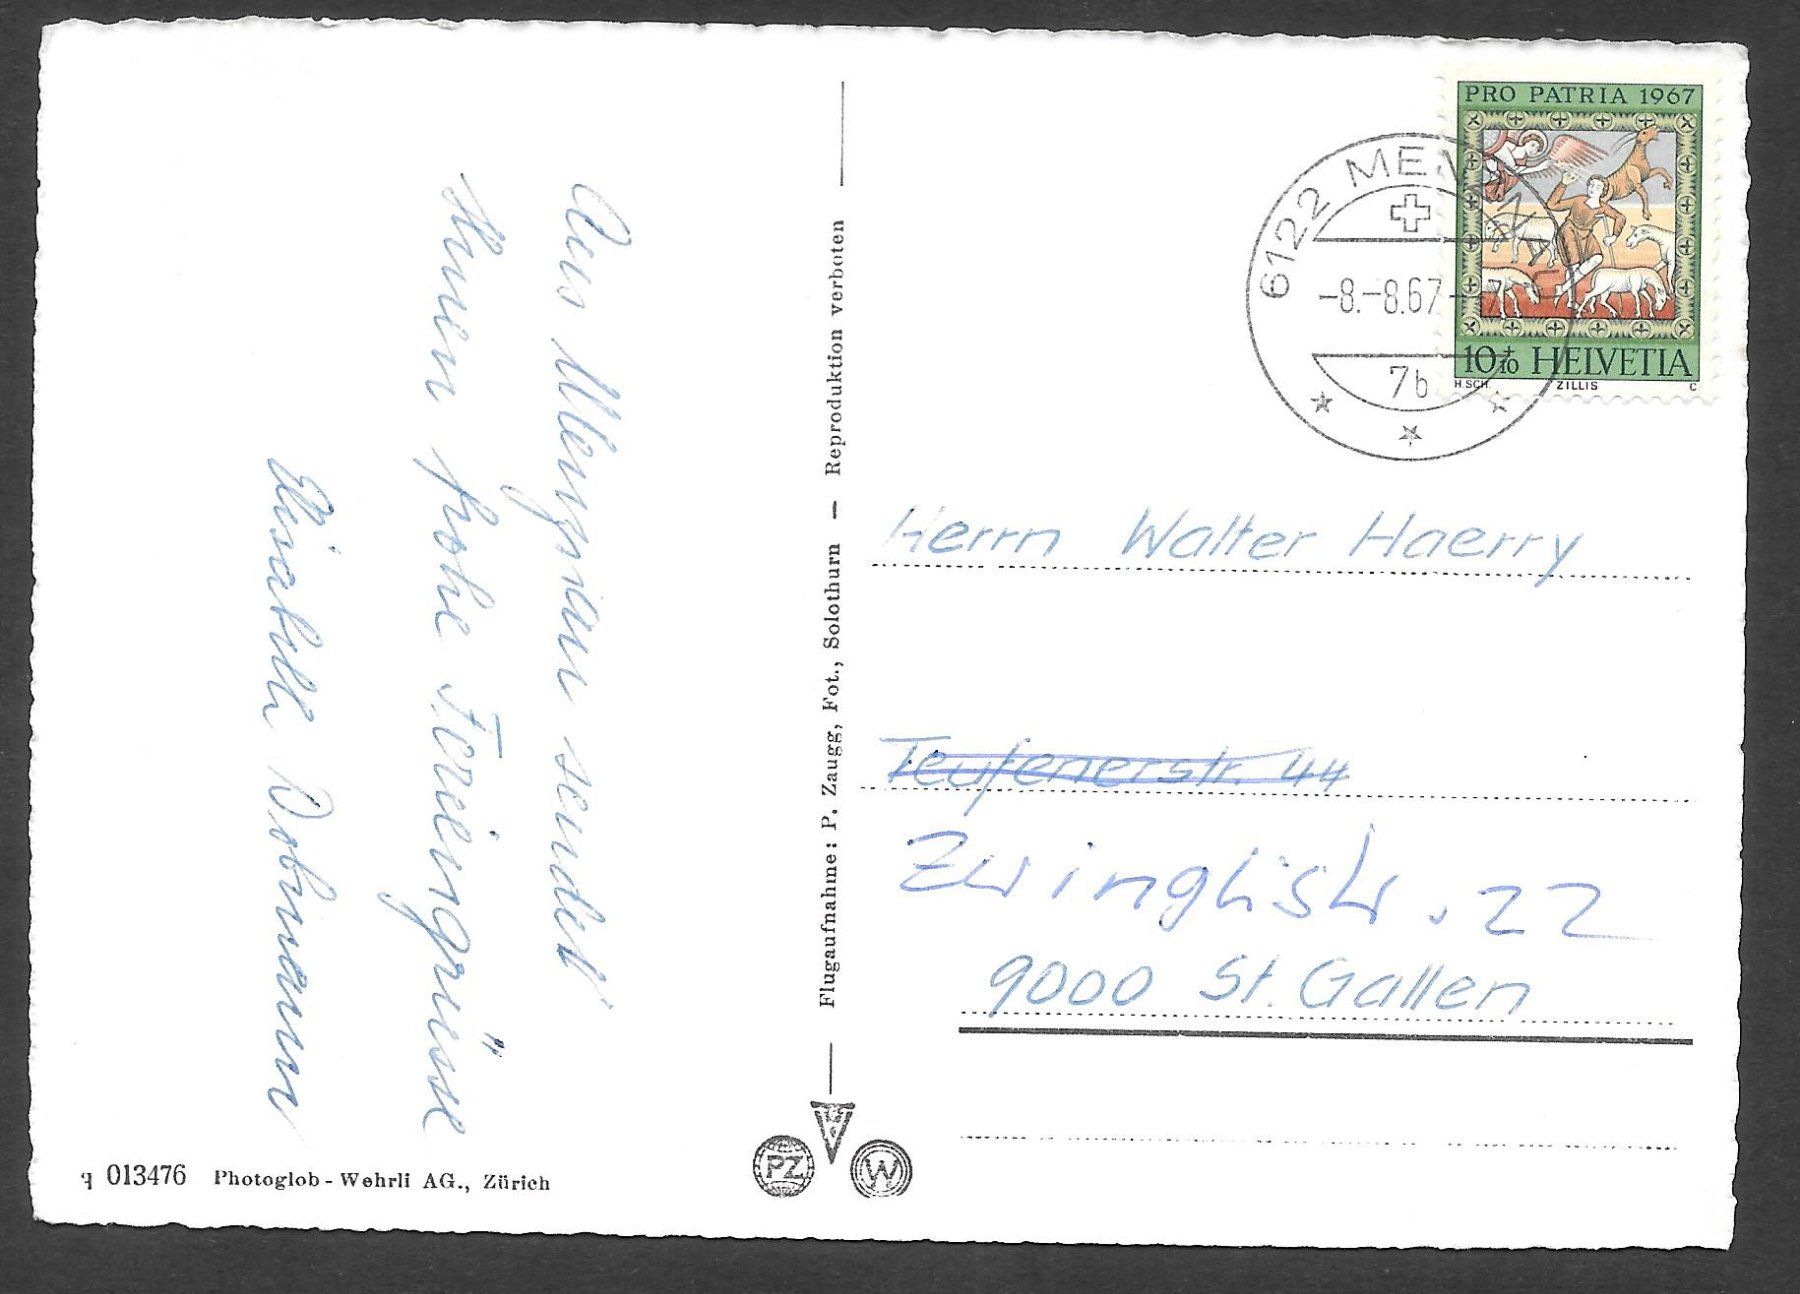 Aus Menznau sendet
Ihnen frohe Feriengrüsse
Elisabeth Dobmann
q 013476 Photoglob - Wehrli AG., Zürich
Flugaufnahme: P. Zaugg, Fot., Solothurn — Reproduktion verboten
PZ
W
PRO PATRIA 1967
10+10 HELVETIA
H.SCH. ZILLIS C
6122 MENZNAU
-8.-8.67-7
7b
Herrn Walter Haerry
Teufenerstr. 44
Zwinglistr. 22
9000 St. Gallen